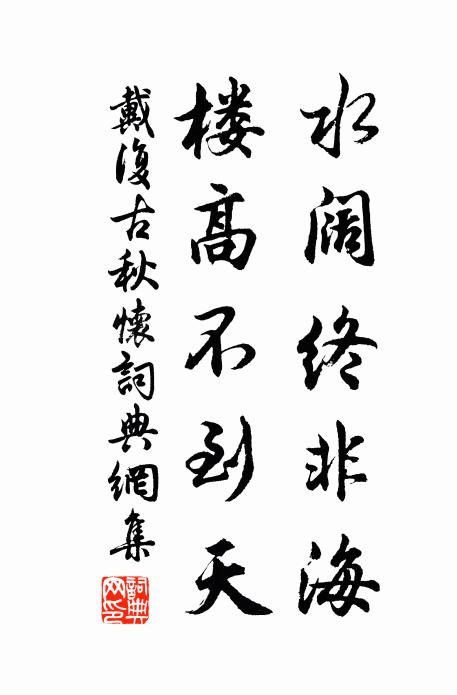 水阔终非海
楼高不到天
戴復古秋懷詞典網集
詞典网印